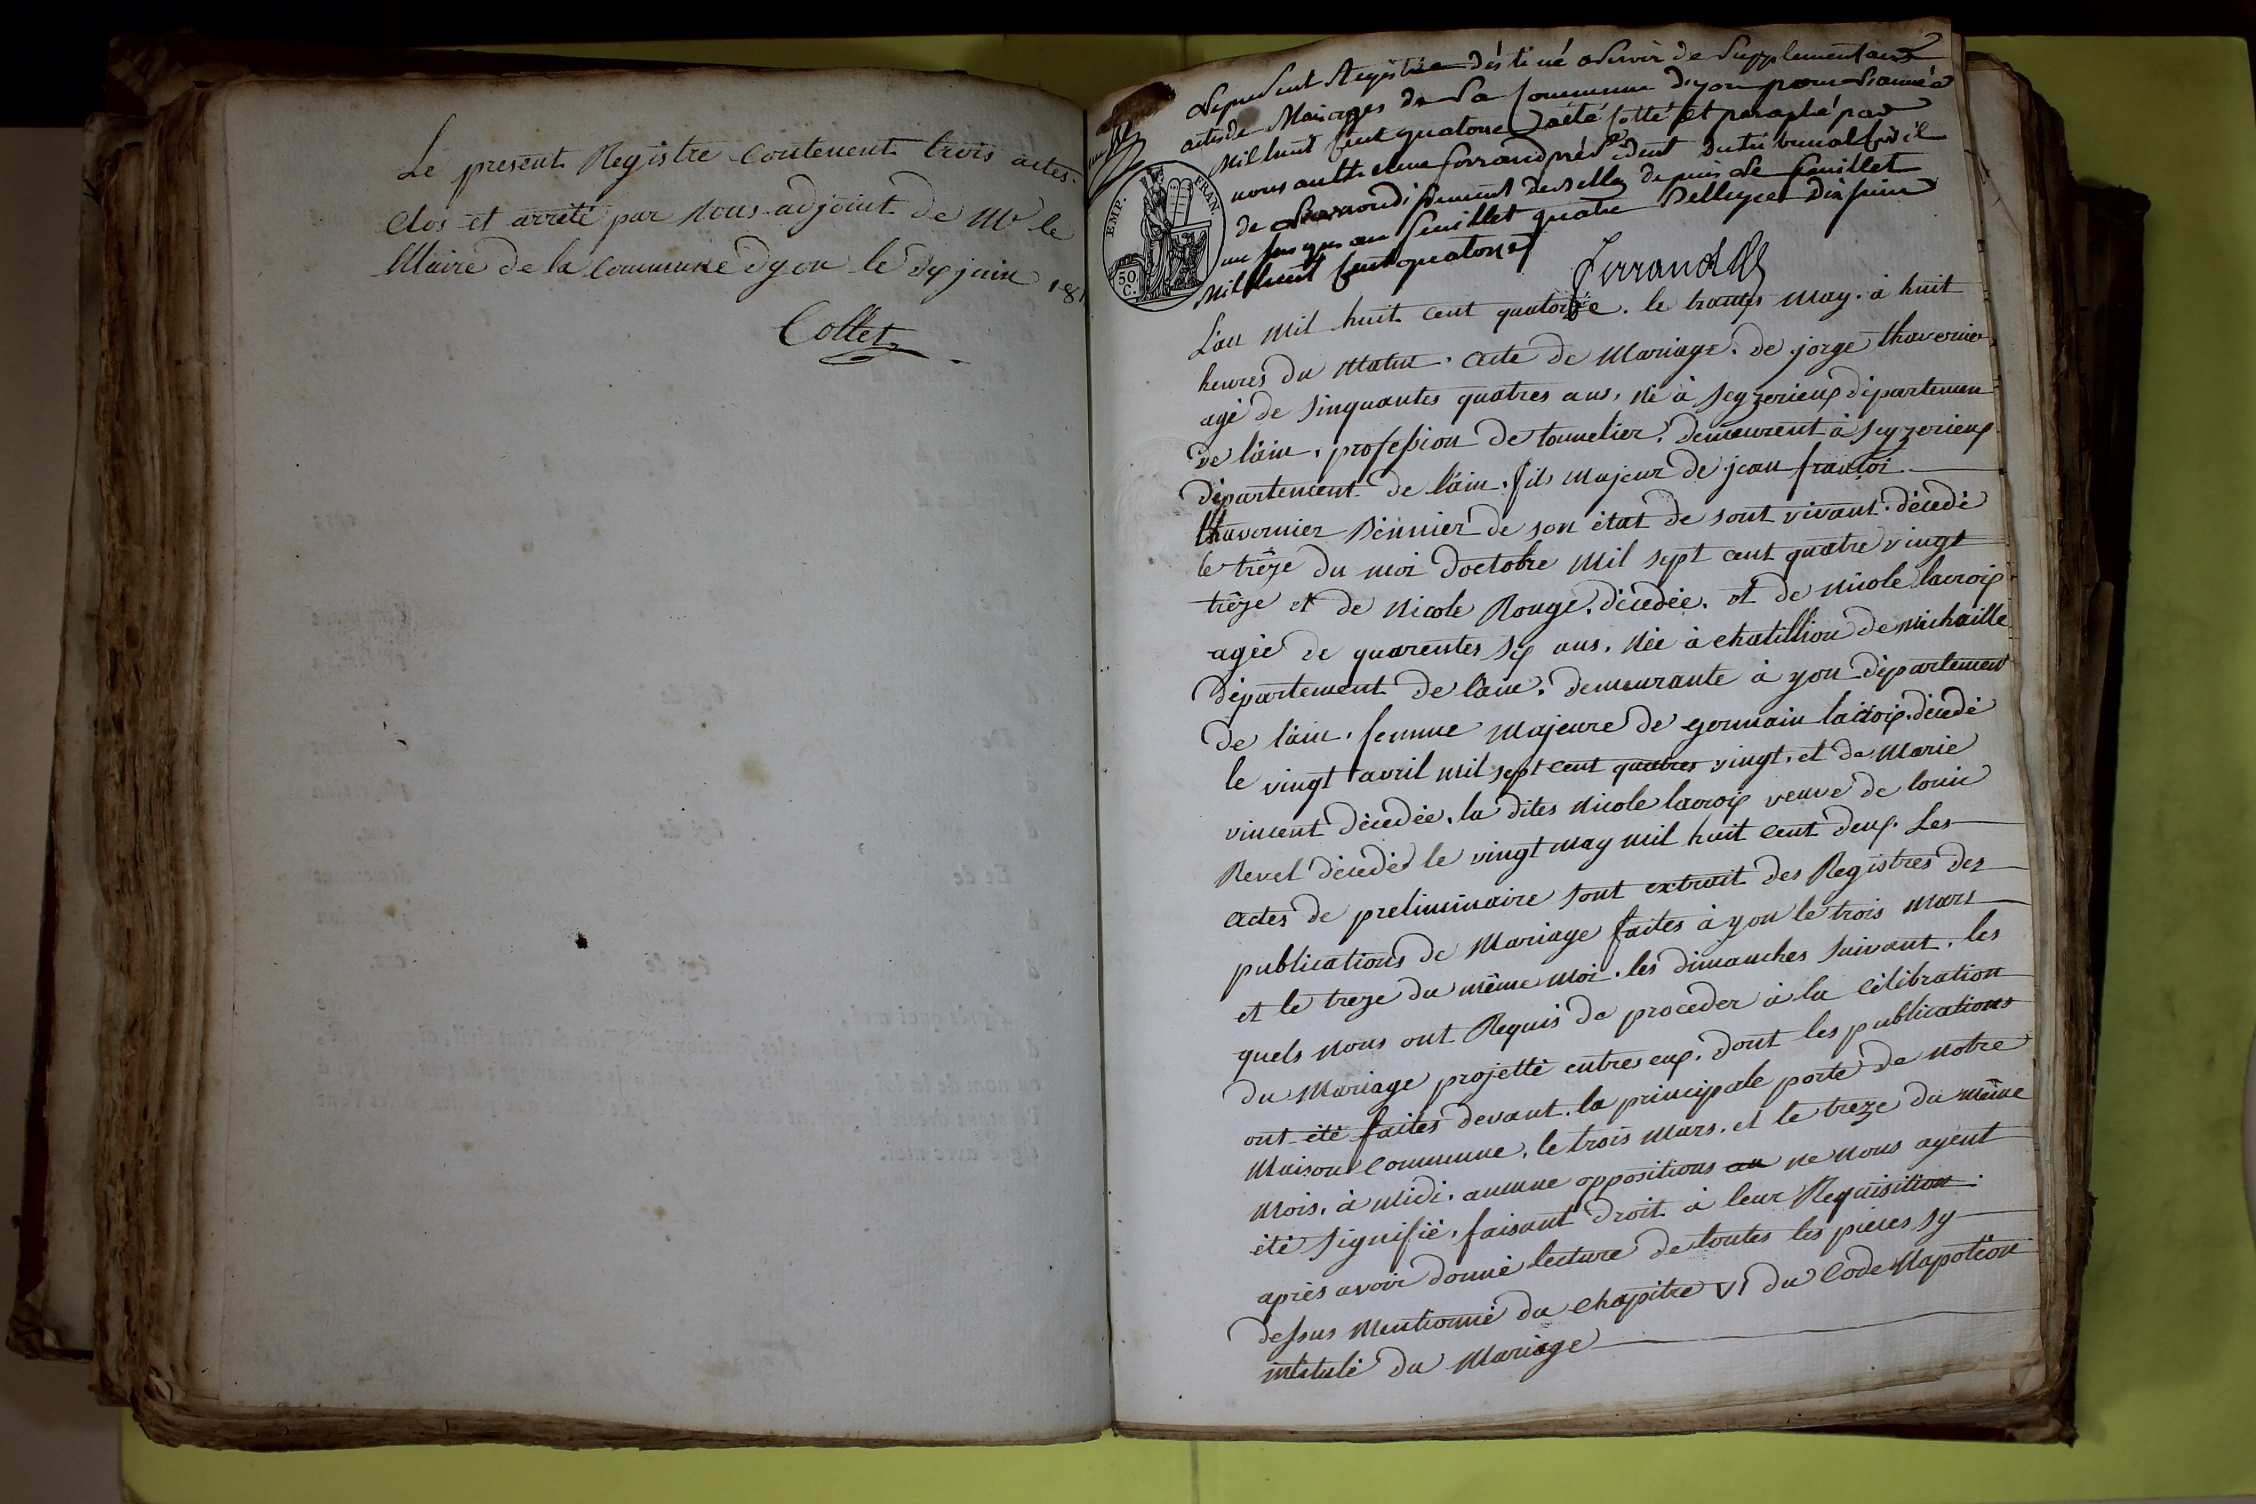 Le present Registre Contenent trois actes.
Clos et arrété par Nous adjoint de Mr le
Maire de la Commune dyon le dix juin 181
Collet
2
Lepresent Registre destiné aServir de Supplementaire
actesde Mariages de La Commune dyon pour Lannéé
Mil huit Cent quatorze aété Cotté et paraphé par
nous Ferrand président du tribunal Civil
de Larrondissement de Belley depuis Le feuillet
un jusques au feuillet quatre Belleyce Dix juin
Mil huit Cent quatorze
Ferrand
EMP. FRAN.
50 C.
L'an Mil huit cent quatorze. le trantes May. à huit
heures du Matin. acte de Mariage. de jorge thavernier
agé de Sinquantes quatres ans, Né à Seyzerieux département
de l'ain, profession de tonnelier. demeurent à Seyzerieux
département de l'ain. fils Majeur de jean françoi
thavernier de son état de sont vivant. décedé
le trêze du moi doctobre Mil sept cent quatre vingt
trêze et de Nicole Rouge. décedée. et de Nicole lacroix
agée de quarentes Six ans, Née à chatillion de michaille
département de l'ain. demeurante à yon département
de l'ain. femme Majeure de germain lacroix. décedé
le vingt avril Mil sept cent quatres vingt. et de Marie
vincent décedée. la dites Nicole lacroix veuve de louis
Revel décedéd le vingt may mil huit Cent deux. Les
actes de preliminaire Sont extrait des Registres des
publications de Mariage faites à yon le trois Mars
et le treze du même Moi. les dimanches Suivant. les
quels Nous ont Requis de proceder à la Célébration
du Mariage projetté entres eux. dont les publications
ont été faites devant. la principale porte de Notre
Maison Commune. le trois Mars. et le treze du même
Mois. à Midi. aucune oppositions au ne Nous ayent
été Signifié. faisant droit à leur Requisition.
après avoir donné lecture de toutes les pieces Sy
dessus Mentionné du Chapitre VI du Code Napoléon
intitulé du Mariage